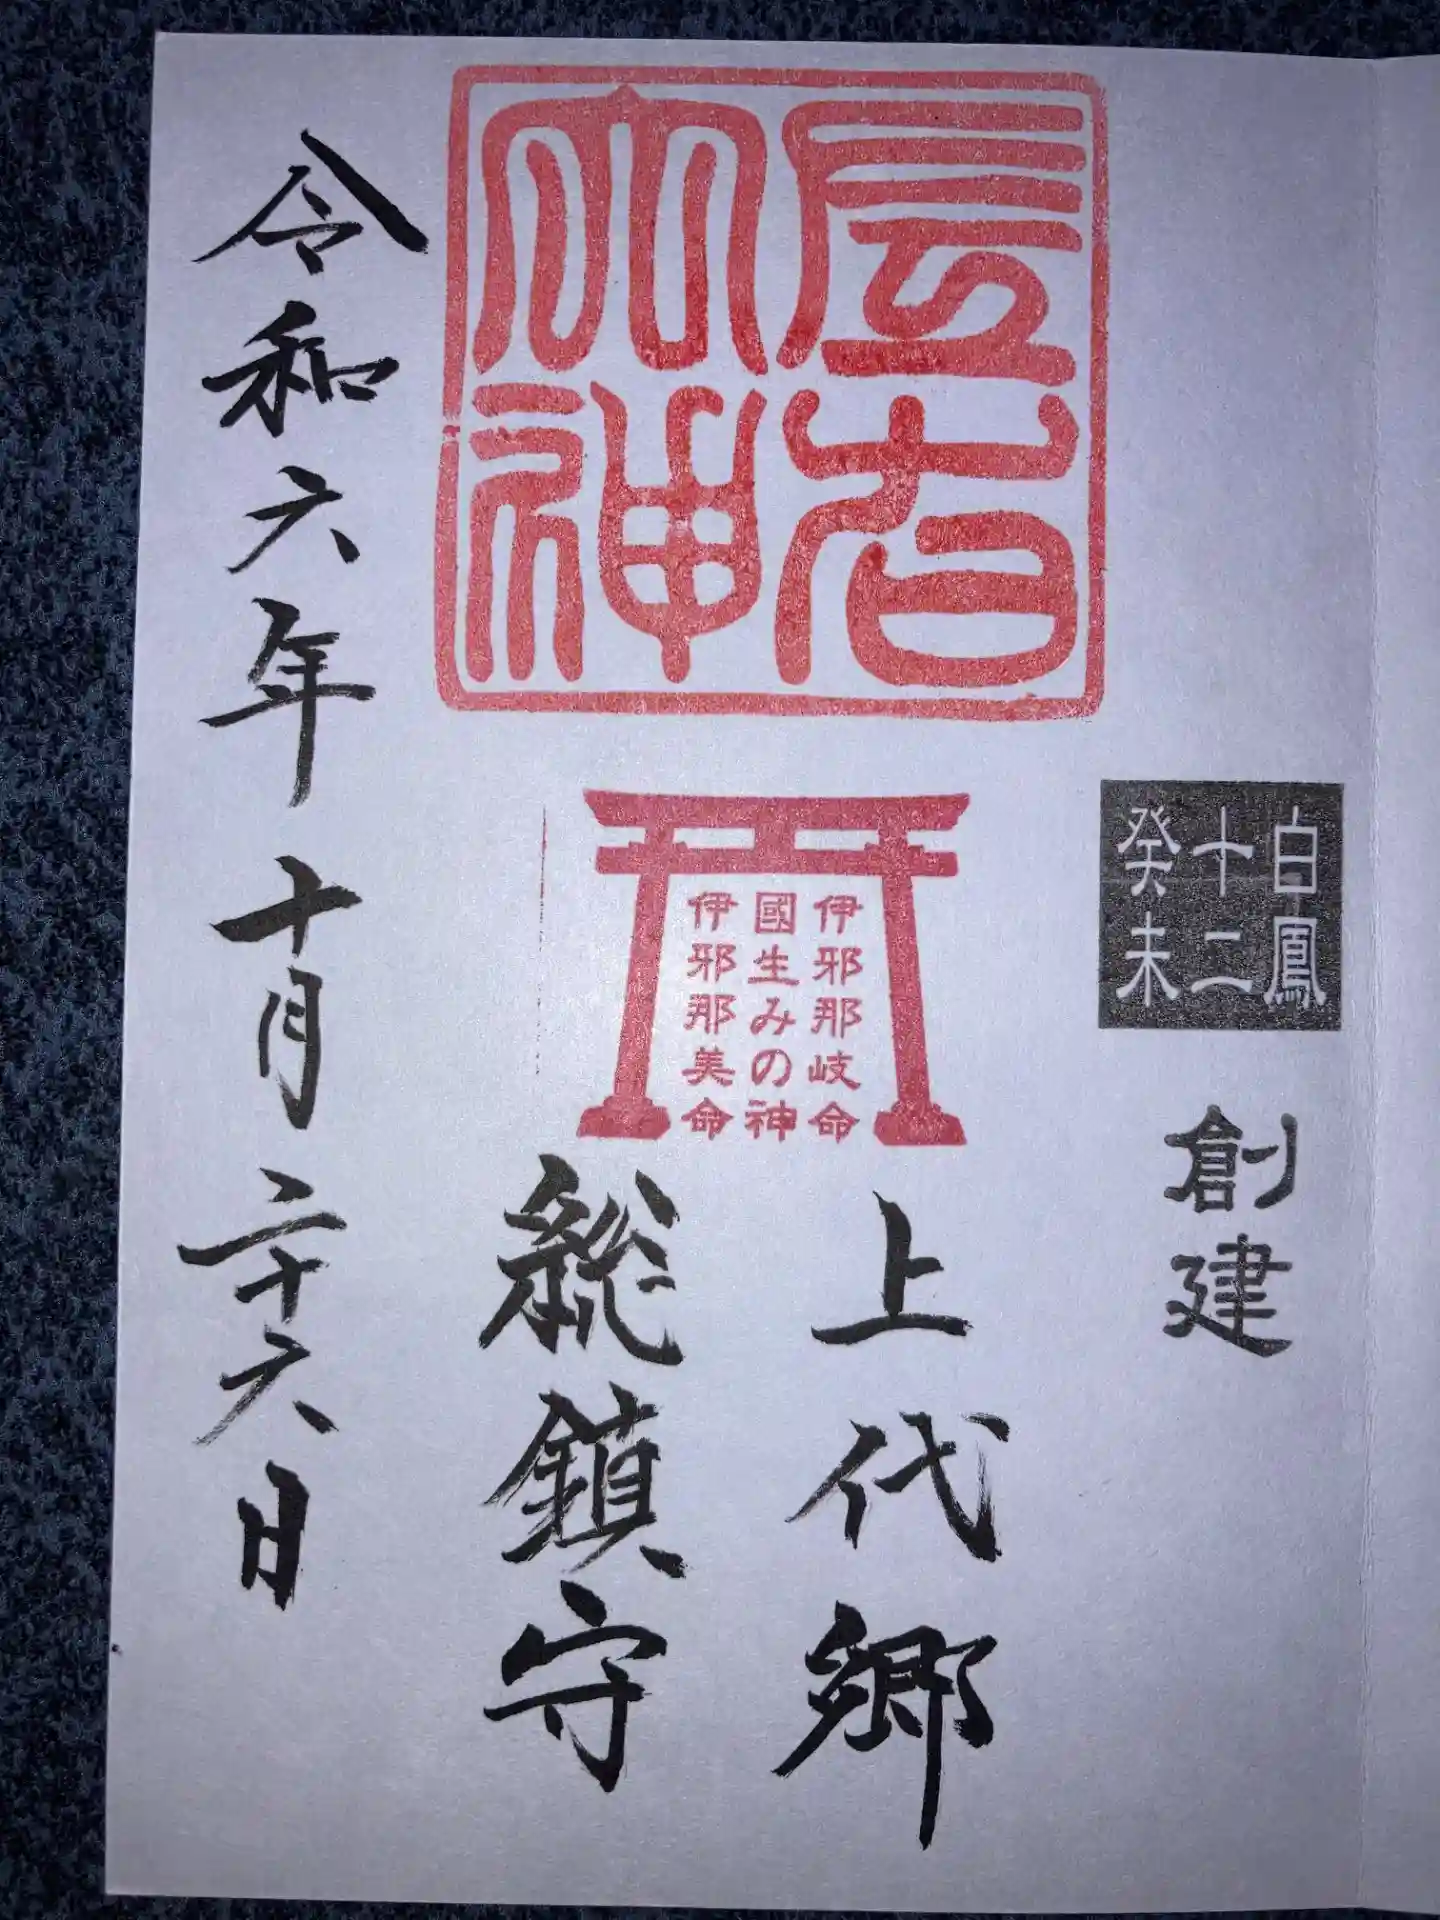 大神
白鳳
十二
癸未
創建
伊邪那岐命
國生みの神
伊邪那美命
上代郷
総鎮守
令和六年十月二十六日